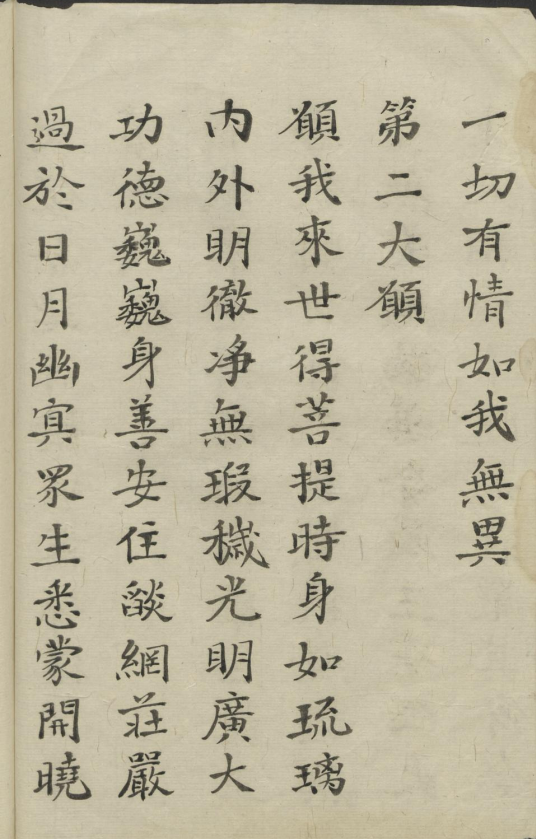 一切有情如我無異
第二大願
願我來世得菩提時身如琉璃
内外明徹净無瑕穢光明廣大
功德巍巍身善安住燄網莊嚴
過於日月幽冥眾生悉蒙開曉